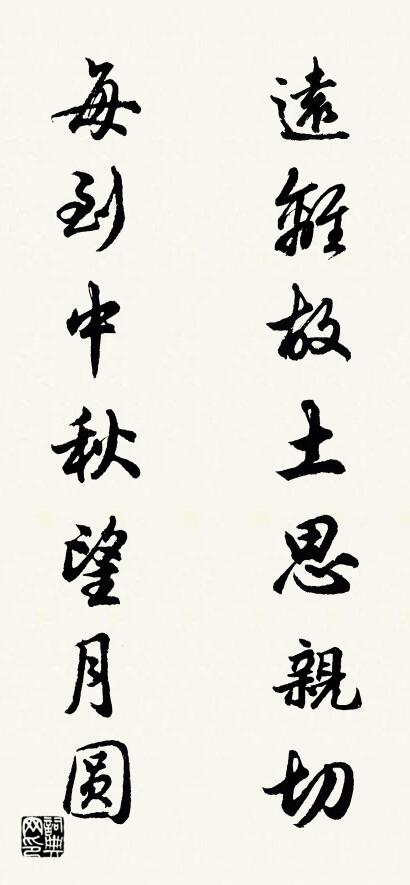 遠離故土思親切
每到中秋望月圆
詞典网印